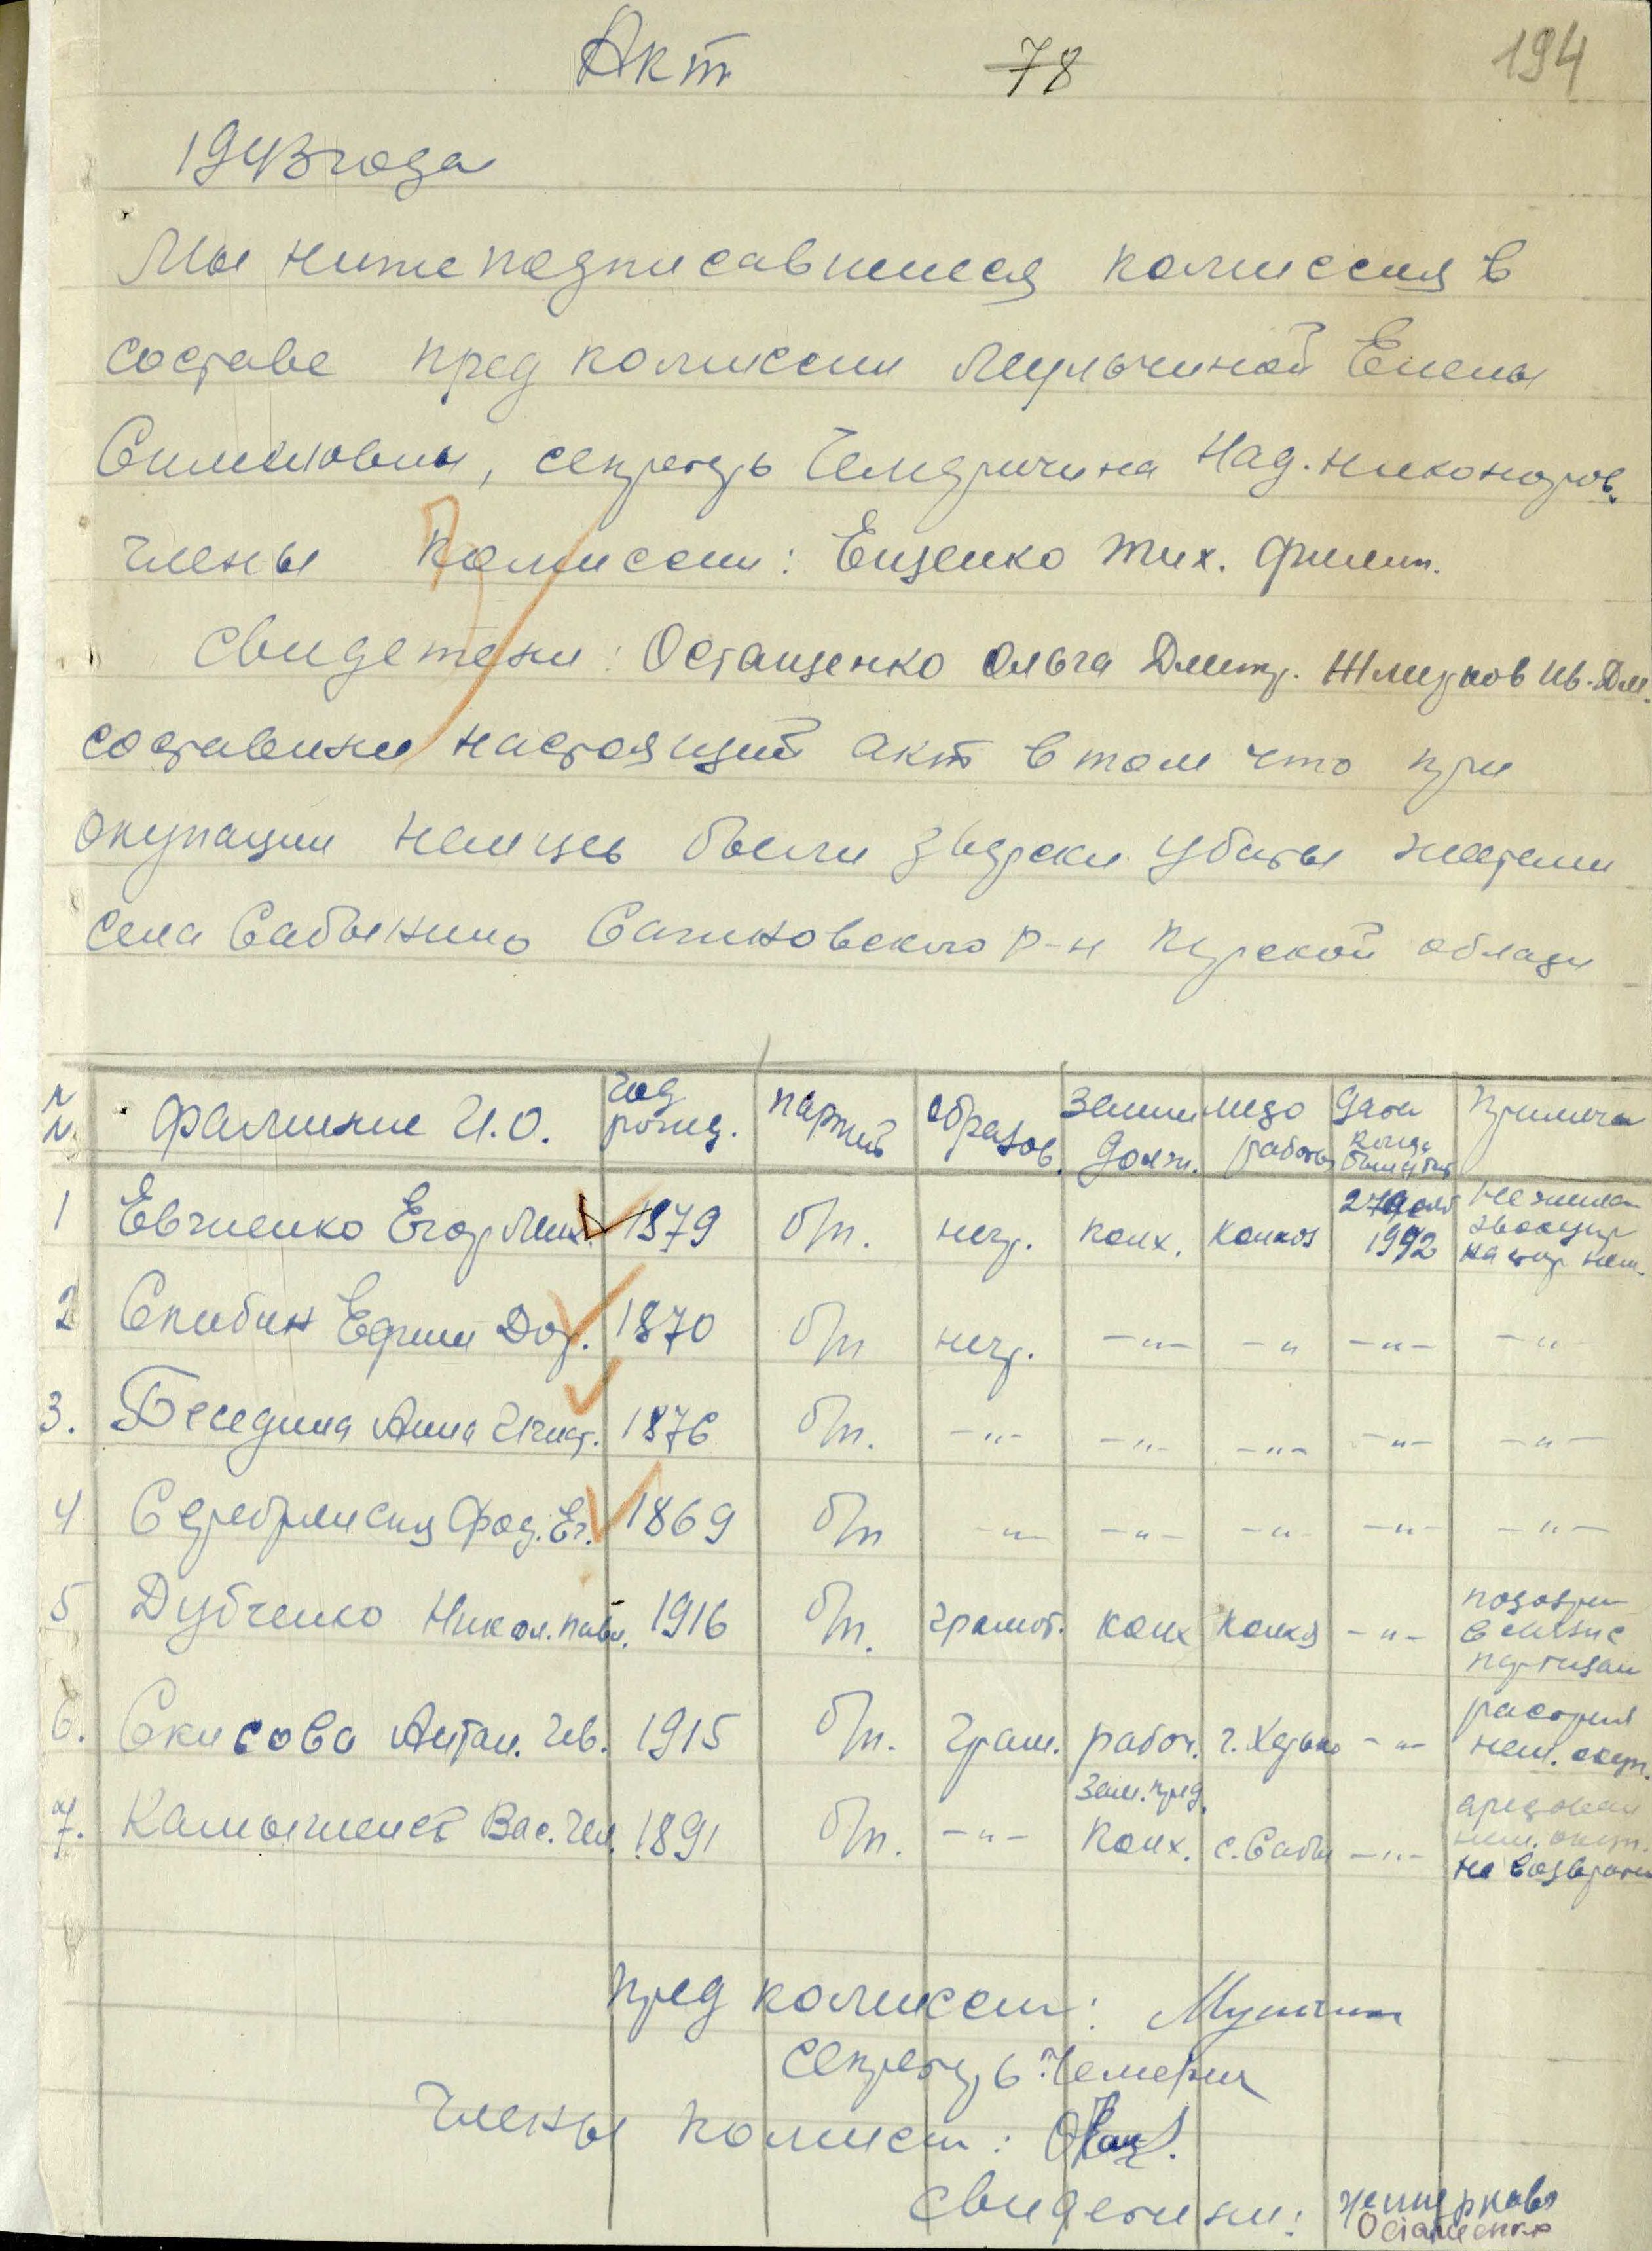 Акт 78 194
1943 года
Мы ниже подписавшиеся комиссия в
составе пред комиссии Мульчиной Елены
Симоновны, секретарь Чемеричина Над. Никоноров.
члены комиссии: Ещенко Тих. Филип.
свидетели: Остащенко Ольга Дмитр. Жмурков Ив. Дм.
составили настоящий акт в том что при
окупации немцев были зверски убиты жители
села Сабынино Сажновского р-н Курской области
NN Фамилие И.О. год рожд. партий образов. заним долж. место работы дата когда был убит примеча
1 Евченко Егор Мих. 1879 б/п. негр. колх. колхоз 1942
2 Скибин Ефим Дор. 1870 б/п негр. -"- -" -"- -"
3. Беседина Анна Игнат. 1876 б/п. -"- -"- -"- -"- -"-
4 Фод. Ег. 1869 б/п -"- -"- -"- -"- -"-
5 Дубченко Никол. Павл. 1916 б/п. грамот. колх колхоз -"- подозрен в связи с партизан
6. Скисова Антан. Ив. 1915 б/п. грам. рабоч. г. Харько -"- растрел нем. окуп.
7. Вас. 1891 б/п. -"- зам. пред. колх. с. Сабы -"- арестован нем. окуп. не возврати
пред комиссии: Мульчин
секретарь Чемерич
члены комисси:
свидетели: Жмуркова
Остащенко